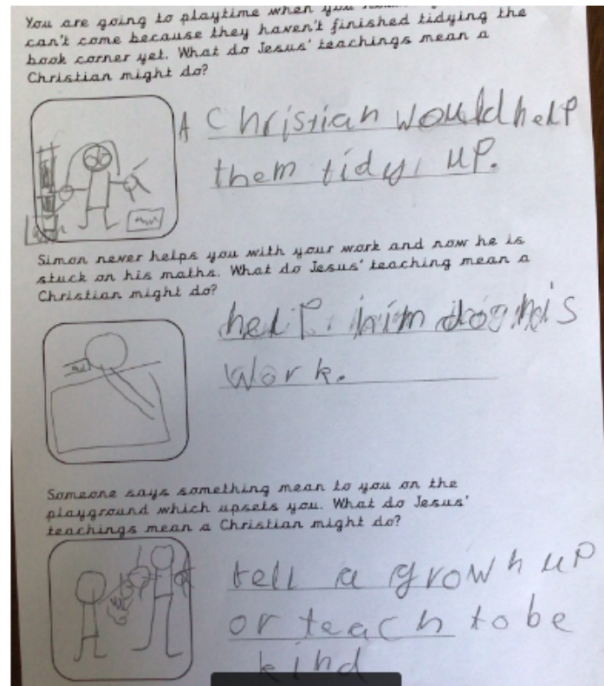 You are going to playtime when you
can't come because they haven't finished tidying the
book corner yet. What do Jesus' teachings mean a
Christian might do?
A Christian would help
them tidy up.
Simon never helps you with your work and now he is
stuck on his maths. What do Jesus' teaching mean a
Christian might do?
help him do his
work.
Someone says something mean to you on the
playground which upsets you. What do Jesus'
teachings mean a Christian might do?
tell a grown up
or teach to be
kind